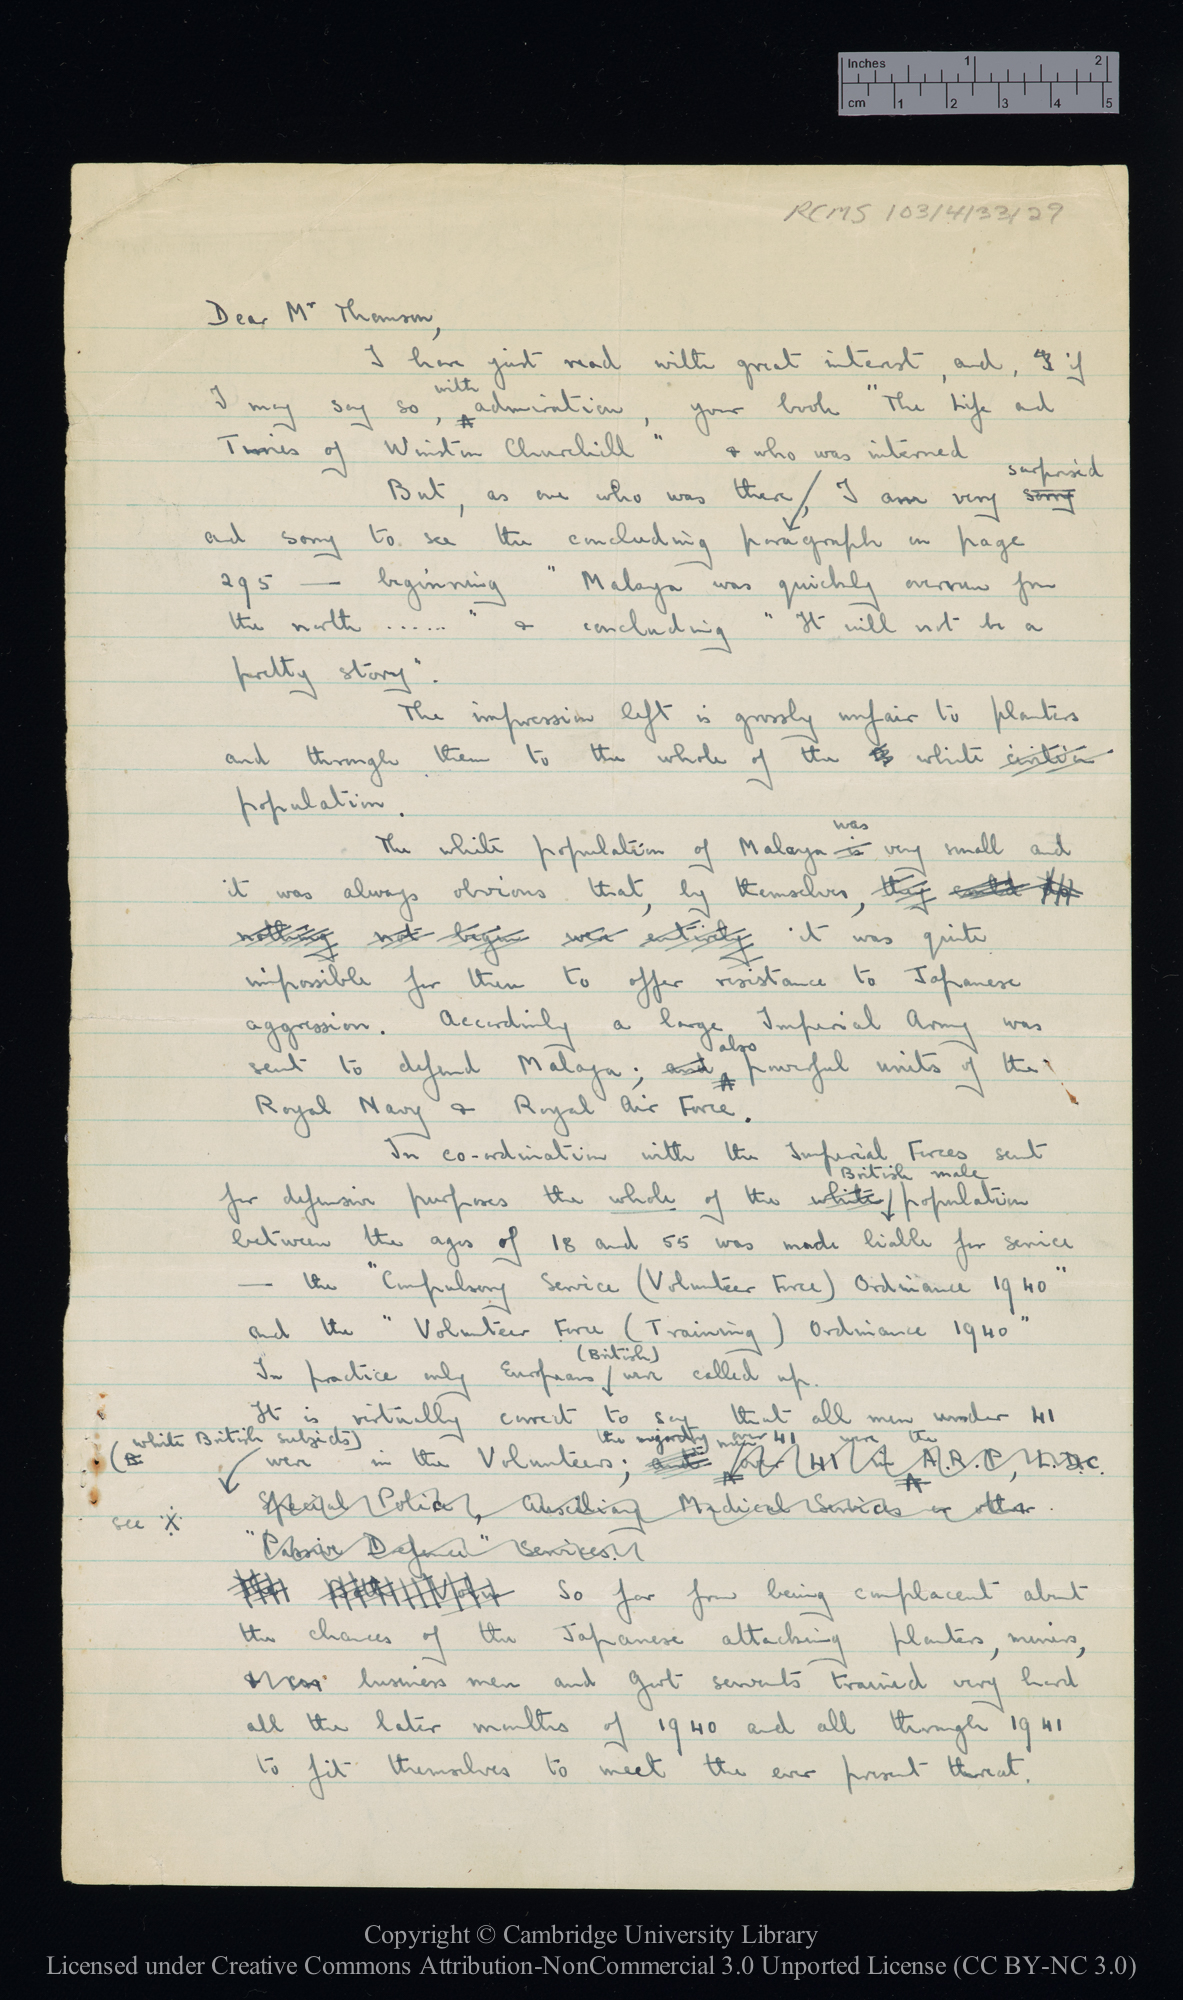 Inches 1 2
cm 1 2 3 4 5
RCMS 103/4/33/29
Dear Mr Thomson,
I have just read with great interest, and, if
I may say so, with admiration, your book "The Life and
Times of Winston Churchill"
& who was interned
But, as one who was there, I am very sorry surprised
and sorry to see the concluding paragraph on page
295 — beginning "Malaya was quickly overrun from
the north ......" & concluding "It will not be a
pretty story".
The impression left is grossly unfair to planters
and through them to the whole of the white civilian
population.
The white population of Malaya is was very small and
it was always obvious that, by themselves, they could do
nothing not begin were entirely it was quite
impossible for them to offer resistance to Japanese
aggression. Accordinly a large Imperial Army was
sent to defend Malaya; and also powerful units of the
Royal Navy & Royal Air Force.
In co-ordination with the Imperial Forces sent
for defensive purposes the whole of the white British male population
between the ages of 18 and 55 was made liable for service
— the "Compulsory Service (Volunteer Force) Ordinance 1940"
and the "Volunteer Force (Training) Ordinance 1940"
In practice only Europeans (British) were called up.
It is virtually correct to say that all men under 41
(white British subjects) were in the Volunteers; and the majority men over 41 over 41 in were the A.R.P, L.D.C.
Special Police, Auxiliary Medical Services or other
see X
"Passive Defence" Services.
So far from being complacent about
the chances of the Japanese attacking planters, miners,
business men and Govt servants trained very hard
all the later months of 1940 and all through 1941
to fit themselves to meet the ever present threat.
Copyright © Cambridge University Library
Licensed under Creative Commons Attribution-NonCommercial 3.0 Unported License (CC BY-NC 3.0)